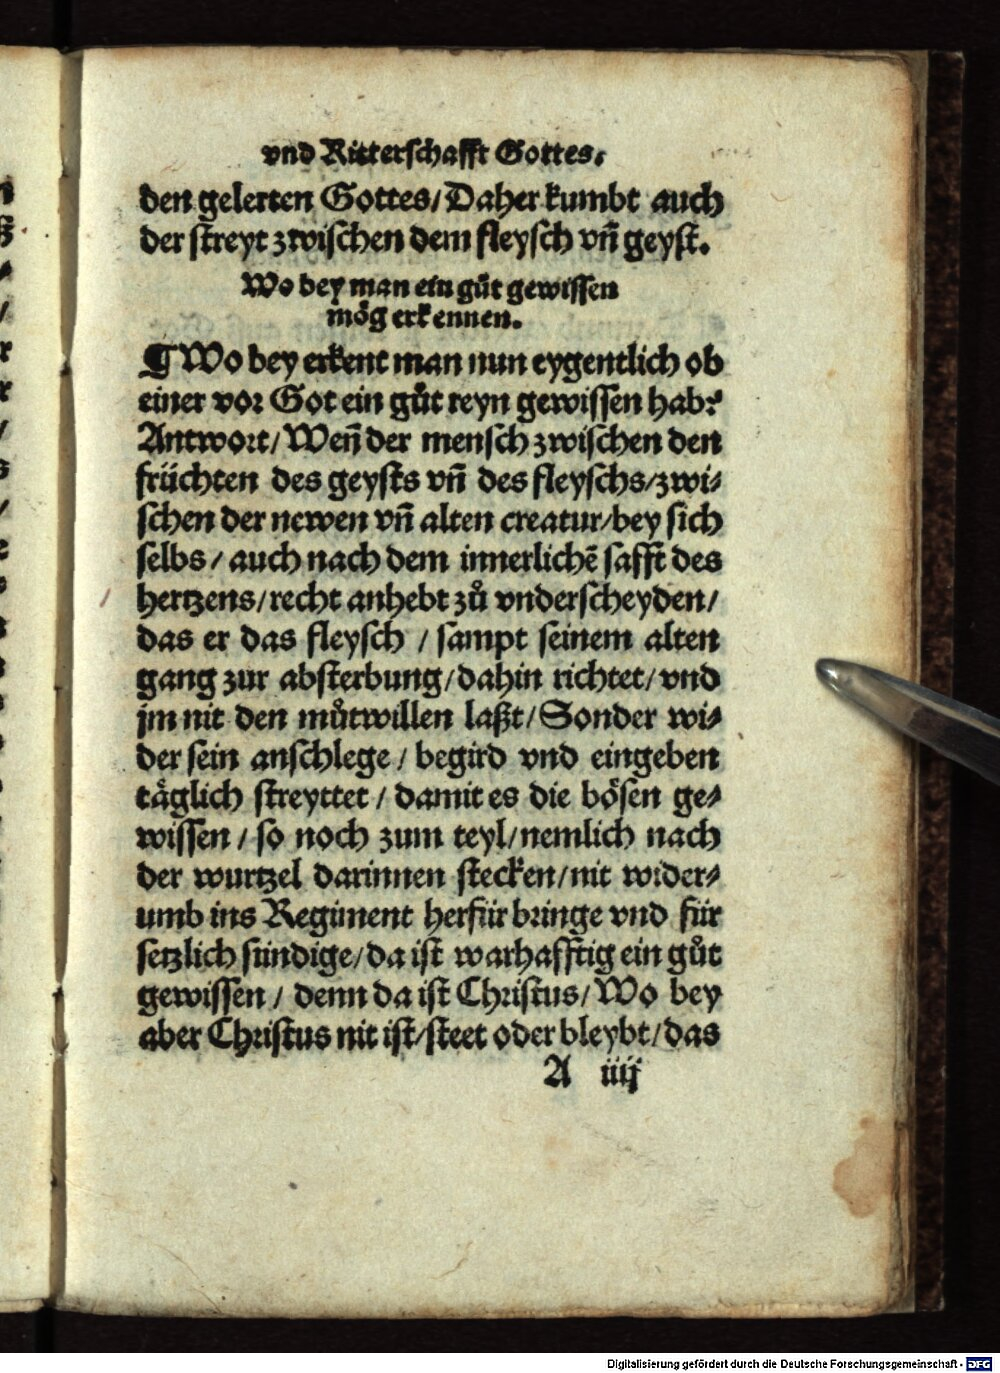 vnd Ritterschafft Gottes.
den gelerten Gottes/Daher kumbt auch
der streyt zwischen dem fleysch vñ geyst.
Wo bey man ein gůt gewissen
mög erkennen.
¶ Wo bey erkent man nun eygentlich ob
einer vor Got ein gůt reyn gewissen hab?
Antwort/Weñ der mensch zwischen den
früchten des geysts vñ des fleyschs/zwi⸗
schen der newen vñ alten creatur/bey sich
selbs/auch nach dem innerlichẽ safft des
hertzens/recht anhebt zů vnderscheyden/
das er das fleysch/sampt seinem alten
gang zur absterbung/dahin richtet/vnd
jm nit den můtwillen laßt/Sonder wi⸗
der sein anschlege/begird vnd eingeben
täglich streyttet/damit es die bösen ge⸗
wissen/so noch zum teyl/nemlich nach
der wurtzel darinnen stecken/nit wider⸗
umb ins Regiment herfür bringe vnd für
setzlich sündige/da ist warhafftig ein gůt
gewissen/denn da ist Christus/Wo bey
aber Christus nit ist/steet oder bleybt/das
A iiij
Digitalisierung gefördert durch die Deutsche Forschungsgemeinschaft - DFG